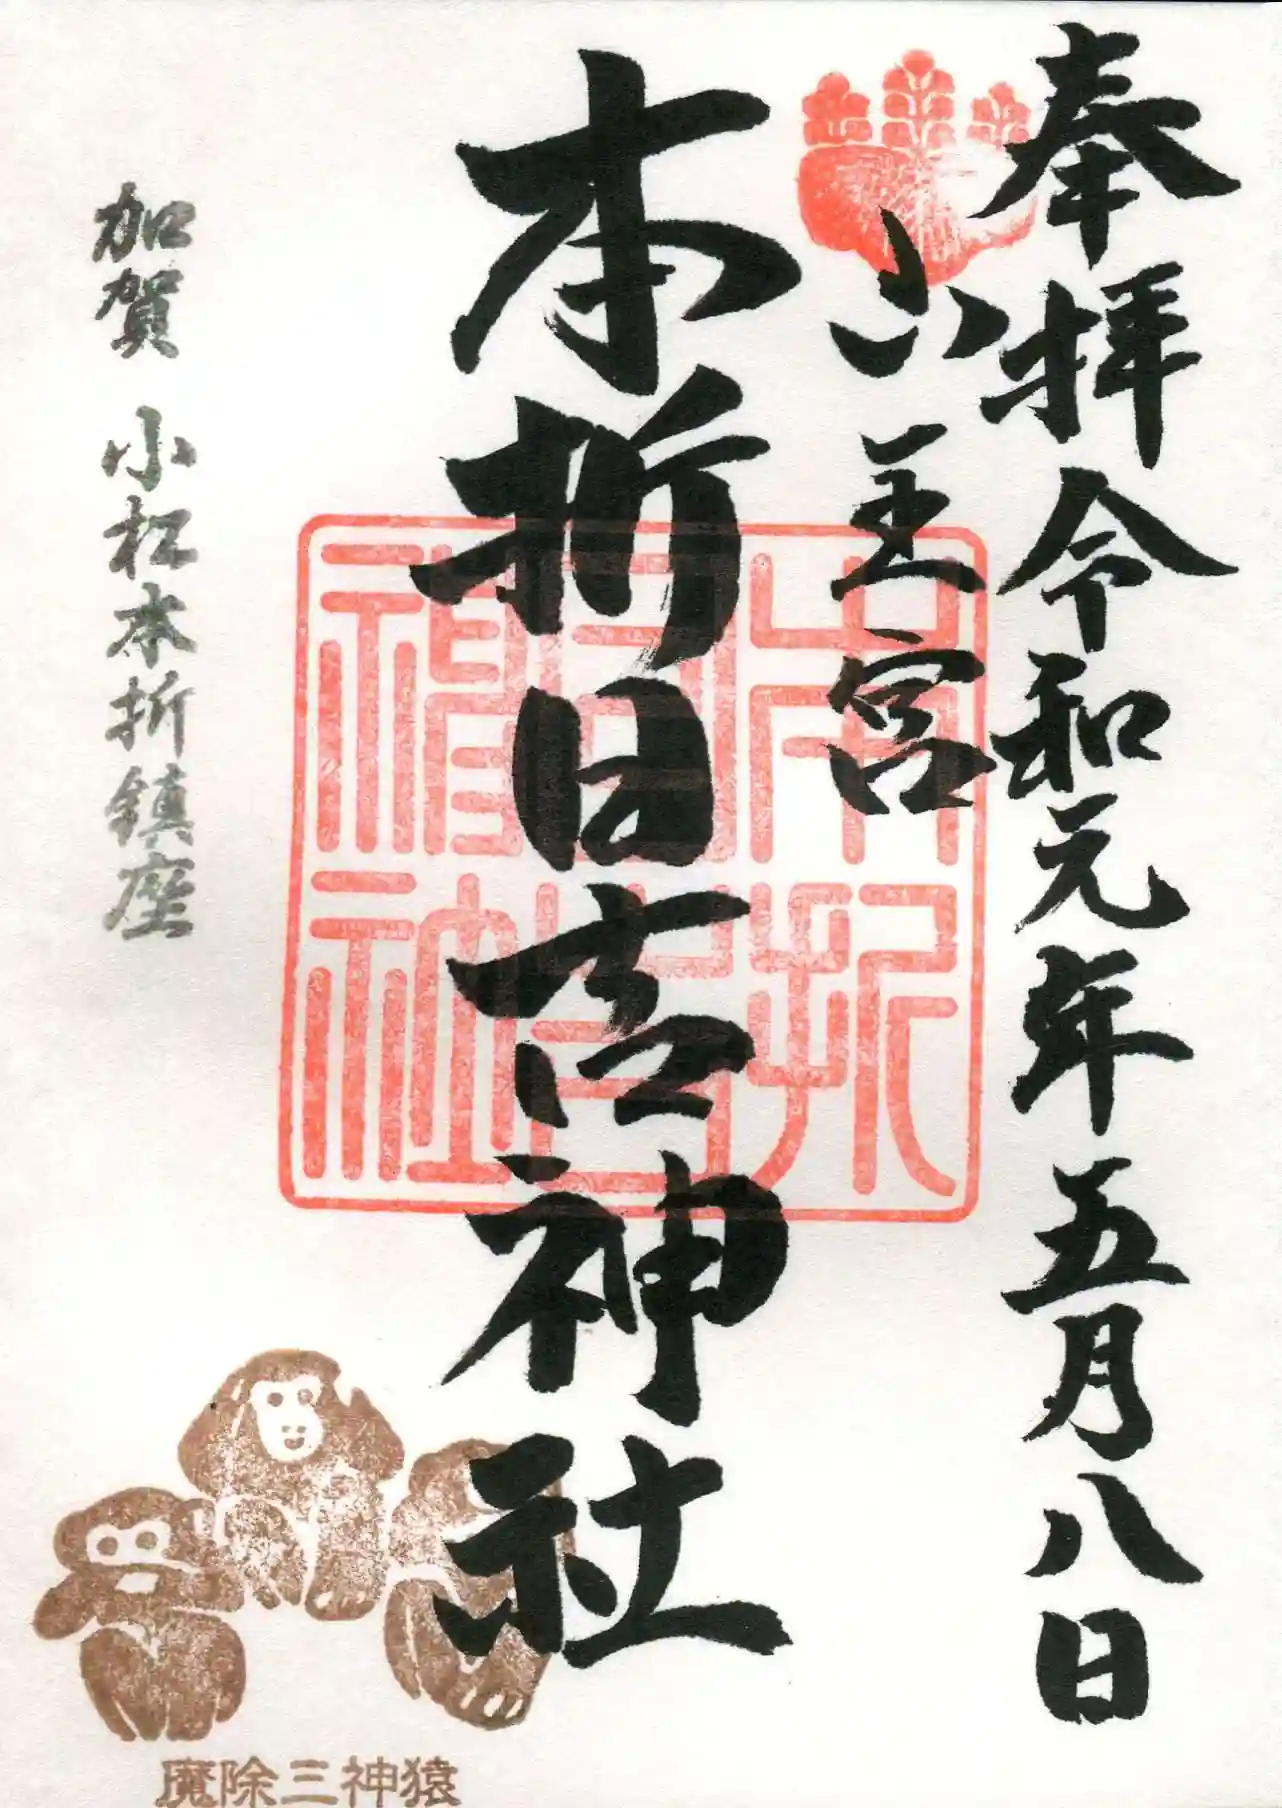 奉拝 令和元年五月八日
山王宮
本折日吉神社
本折日吉神社
加賀 小松本折鎮座
魔除三神猿